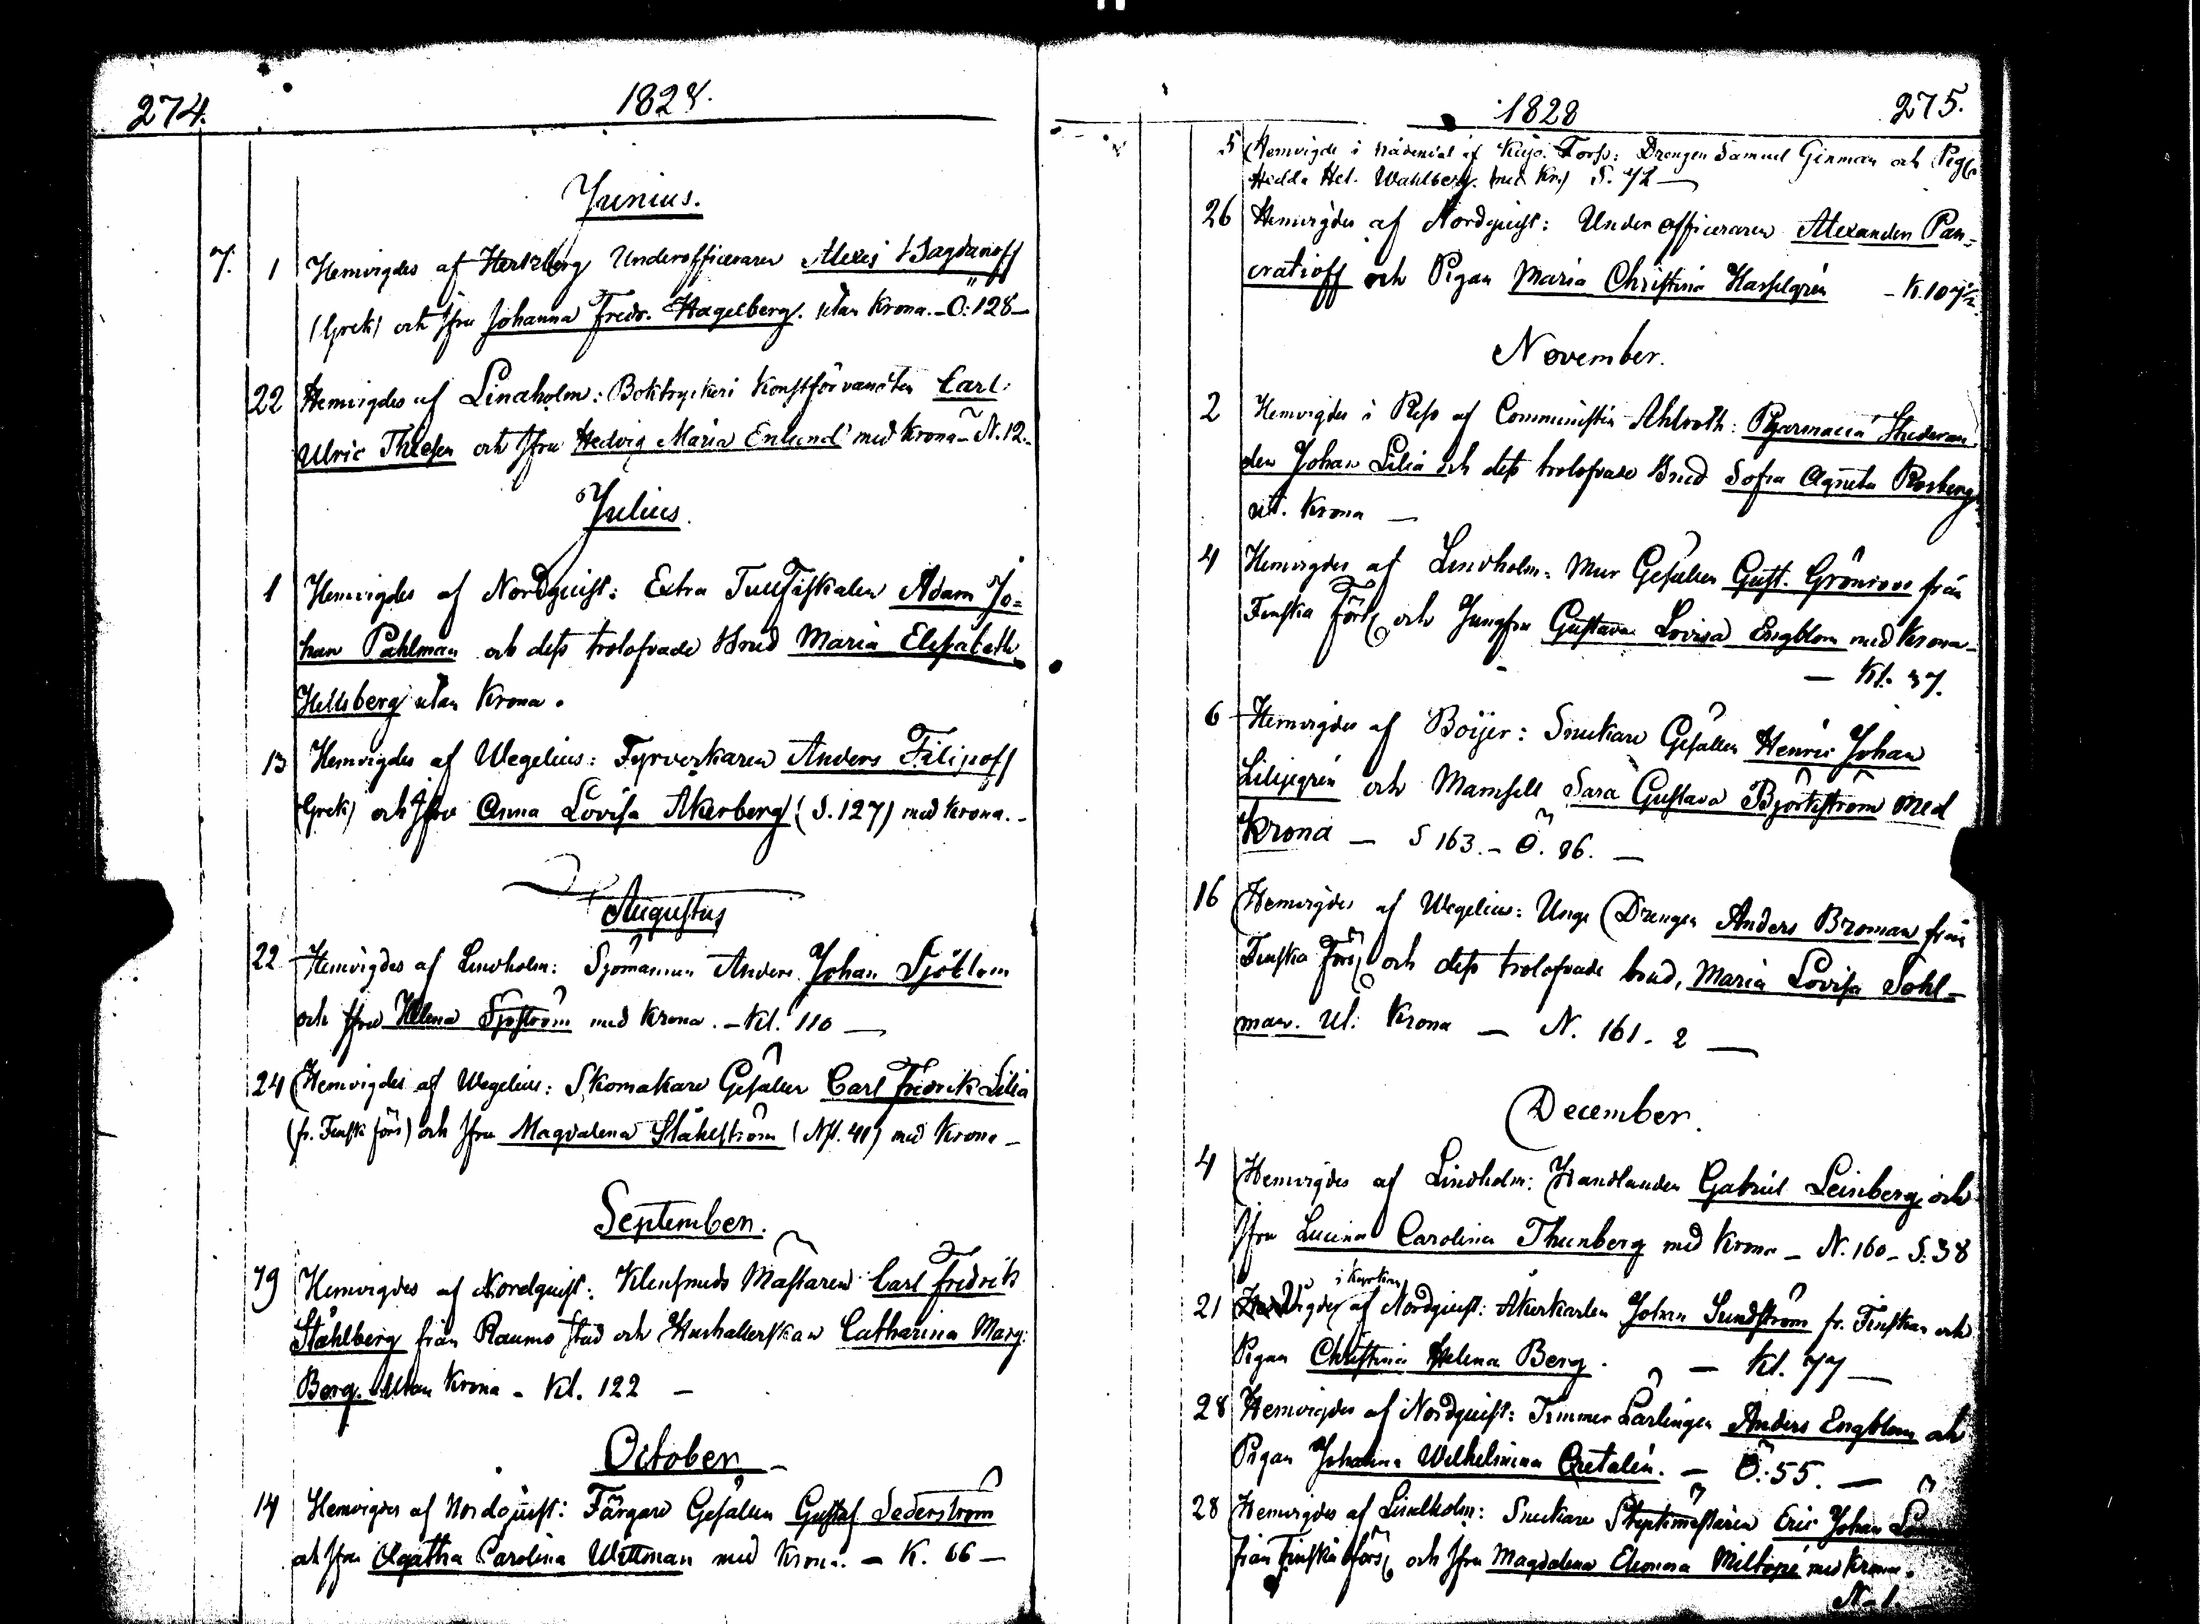 274.
1828.
Junius.
7. 1 Hemvigdes af Hertzberg Underofficeraren Alexej Bagdanoff
(Grek) och Jfru Johanna Fredr. Hagelberg. utan Krona. - Ö: 128 -
22 Hemvigdes af Lindholm: Boktryckeri Konstförvandten Carl
Ulric Thlesen och Jfru Hedvig Maria Enlund med Krona - N. 12.
Julius.
1 Hemvigdes af Nordquist: Extra Tullfiskalen Adam Jo=
han Pahlman och dess trolofvade Brud Maria Elisabeth
Hellsberg utan Krona.
13 Hemvigdes af Wegelius: Fyrverkaren Anders Filipoff
(Grek) och Jfru Anna Lovisa Åkerberg (S. 127) med Krona. -
Augustus
22 Hemvigdes af Lindholm: Sjömannen Anders Johan Sjöblom
och Jfru Helena Sjöström med Krona. - Kl. 110 -
24 Hemvigdes af Wegelius: Skomakare Gesällen Carl Fredrik Lilia
(fr. Finsk förs) och Jfru Magdalena Ståhlström (Nst. 41) med Krona -
September.
19 Hemvigdes af Nordquist: Klensmeds Mästaren Carl Fredrik
Ståhlberg från Raumo stad och Hushållerskan Catharina Marg:
Berg. utan Krona - Kl. 122 -
October
14 Hemvigdes af Nordquist: Färgare Gesällen Gustaf Sederström
och Jfru Agatha Carolina Wittman med Krona. - K. 66 -
1828
275.
5 Hemvigde i Nådendal af Torss: Drengen Samuel Ginman och Pig
Hedda Hel. Wahlberg. (med Kr.) S. 72 -
26 Hemvigdes af Nordquist: Under officeraren Alexander Pan=
cratioff och Pigan Maria Christina Hasselgrén - K. 107½.
November.
2 Hemvigdes i Reso af Communisten Ahlroth: Pharmacia Studeran
den Johan Lilia och dess trolofvade Brud Sofia Agneta Rosberg
ut. Krona -
4 Hemvigdes af Lindholm: Mur Gesällen Gust. Grönroos från
Finska Förs och Jungfru Gustava Lovisa Engblom med Krona -
- Kl. 37.
6 Hemvigdes af Böijer: Snickare Gesällen Henric Johan
Liljegrén och Mamsell Sara Gustava Björkström med
Krona - S 163. - Ö. 86. -
16 Hemvigdes af Wegelius: Unge Drengen Anders Broman från
Finska Förs och dess trolofvade brud, Maria Lovisa Sohl=
man. ut: Krona - N. 161. 2 -
December.
4 Hemvigdes af Lindholm: Handlanden Gabriel Leinberg och
Jfru Lucina Carolina Thunberg med Krona - N. 160 - S. 38
i Kyrkan
21 Vigdes af Nordquist: Åkerkarlen Johan Sundström fr. Finskan och
Pigan Christina Helena Berg. - Kl. 77 -
28 Hemvigdes af Nordquist: Timmer Lärlingen Anders Engblom och
Pigan Johanna Wilhelmina Cretalén. - Ö. 55. -
28 Hemvigdes af Lindholm: Snickare Eric Johan
från Finska förs och Jfru Magdalena Eleonora Miltopé med Krona.
N. 1.